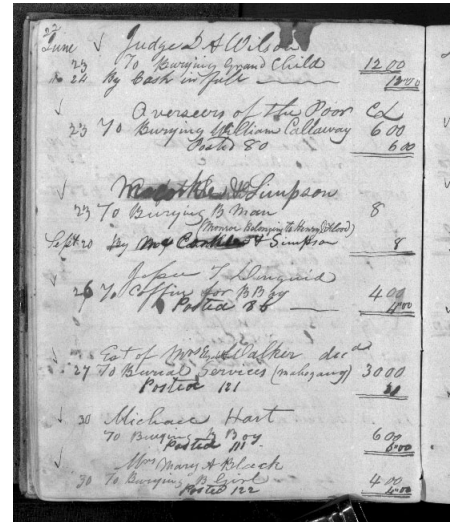 22
June √ Judge D A Wilson
23 To Burying Grand Child 12 00
24 By Cash in full 12 00
√ Overseers of the Poor Cr
23 To Burying William Callaway 6 00
Posted 80 6 00
√ McCorkle & Simpson
23 To Burying B Man 8
(Monroe Belonging to Henry Flood)
Sept 20 By McCorkle & Simpson 8
√ Jesse T
26 To Coffin for B Boy 4 00
Posted 86 4 00
√ Est of Mrs Walker decd
27 To Burial Services (mahogany) 30 00
Posted 121 30
√ 30 Michael Hart
To Burying B Boy 6 00
Posted 6 00
√ Mrs Mary A Black
30 To Burying B Girl 4 00
Posted 122 4 00